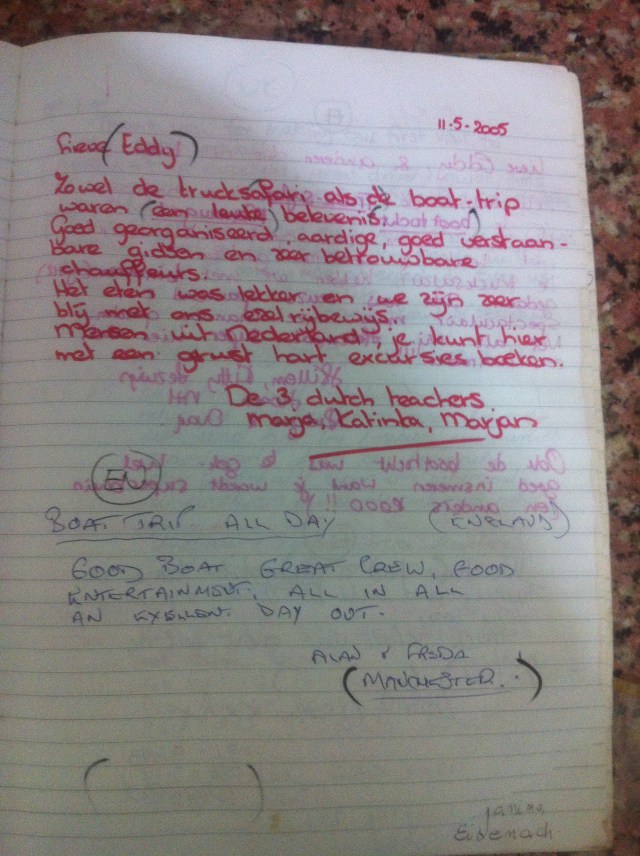 11-5-2005
Lieve (Eddy)
Zowel de trucksafari als de boat-trip
waren (een leuke) belevenis.
Goed georganiseerd, aardige, goed verstaan-
bare gidsen en zeer betrouwbare
chauffeurs.
Het eten was lekker en we zijn zeer
blij met ons ezelrijbewijs.
Mensen uit Nederland, je kunt hier
met een grust hart excursies boeken.
De 3 dutch teachers
Marga, Katinka, Marjan
EN
BOAT TRIP ALL DAY (ENGLAND)
GOOD BOAT GREAT CREW, GOOD
ENTERTAINMENT, ALL IN ALL
AN EXELLENT DAY OUT.
ALAN & FREDA
(MANCHESTER.)
Janina
Eisenach